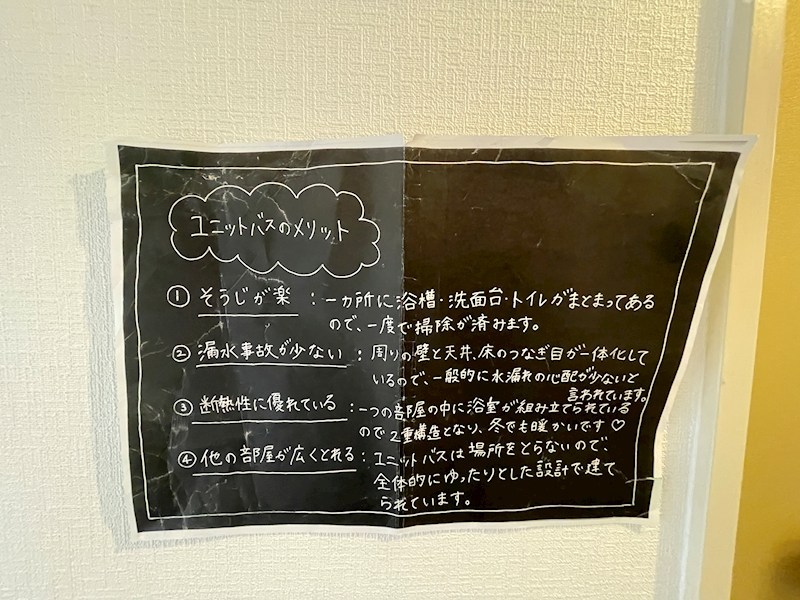 ユニットバスのメリット
① そうじが楽 : 一カ所に浴槽・洗面台・トイレがまとまってある
ので、一度で掃除が済みます。
② 漏水事故が少ない : 周りの壁と天井、床のつなぎ目が一体化して
いるので、一般的に水漏れの心配が少ないと
言われています。
③ 断熱性に優れている : 一つの部屋の中に浴室が組み立てられている
ので2重構造となり、冬でも暖かいです♡
④ 他の部屋が広くとれる : ユニットバスは場所をとらないので、
全体的にゆったりとした設計で建て
られています。